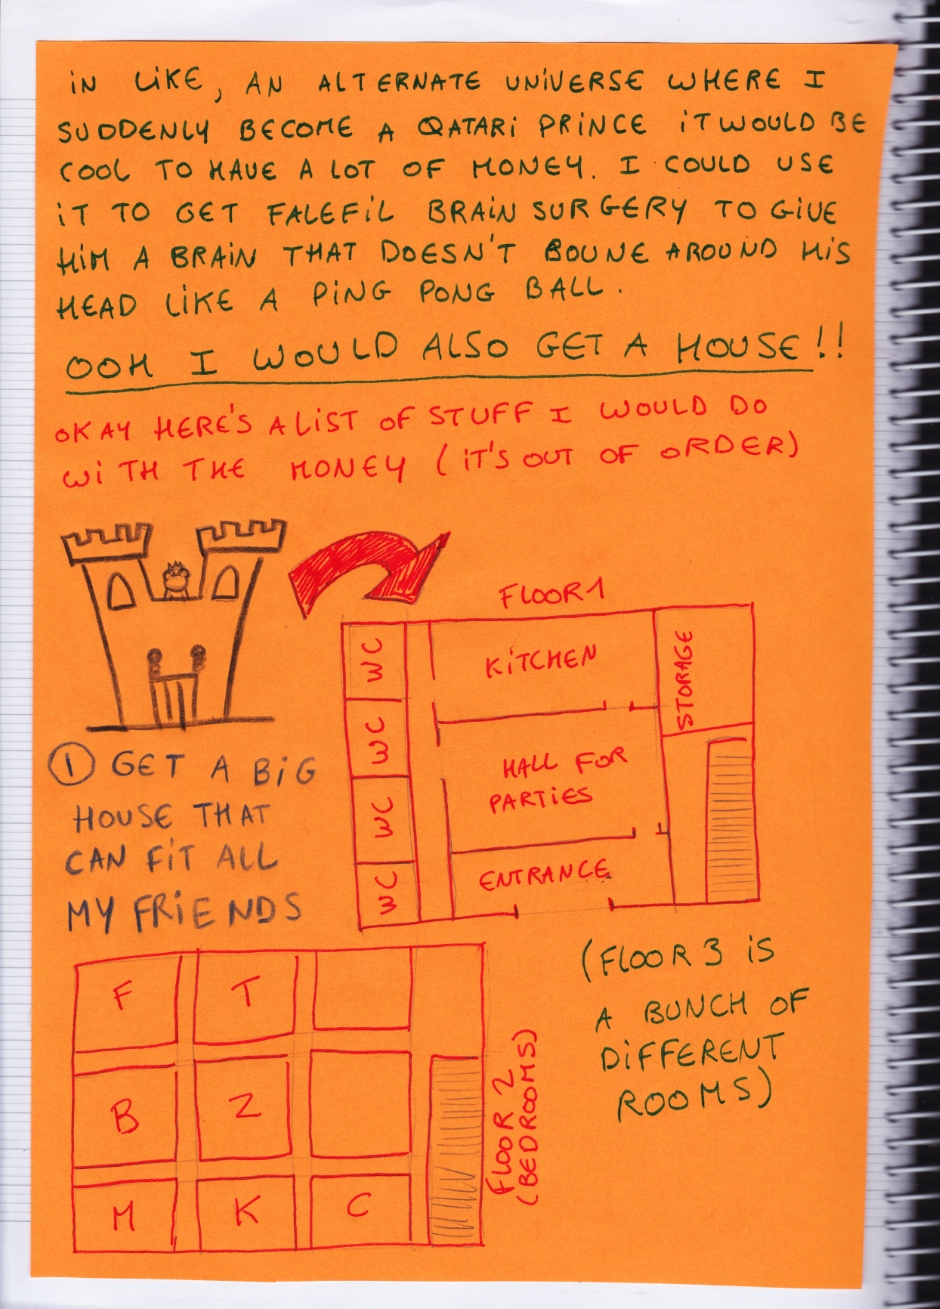 iN LiKE, AN ALTERNATE UNiVERSE WHERE I
SUDDENLY BECOME A QATARi PRINCE iT WOULD BE
COOL TO HAVE A LOT OF MONEY. I COULD USE
iT TO GET FALEFiL BRAiN SURGERY TO GiVE
HiM A BRAiN THAT DOESN'T BOUNE AROUND HiS
HEAD LiKE A PiNG PONG BALL.
OOH I WOULD ALSO GET A HOUSE!!
OKAY HERE'S A LiST OF STUFF I WOULD DO
WiTH THE MONEY (iT'S OUT OF ORDER)
FLOOR 1
WC
KiTCHEN
STORAGE
WC
HALL FOR
PARTiES
WC
WC
ENTRANCE
1 GET A BiG
HOUSE THAT
CAN FiT ALL
MY FRiENDS
F
T
B
Z
M
K
C
FLOOR 2
(BEDROOMS)
(FLOOR 3 iS
A BUNCH OF
DiFFERENT
ROOMS)